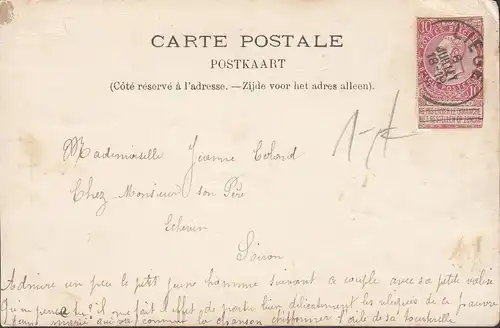 CARTE POSTALE
POSTKAART
(Côté réservé à l'adresse. — Zijde voor het adres alleen).
10 10
LIEGE
JUILLET
1-
Mademoiselle Jeanne
Chez Monsieur son Père
Echevin
Soiron
Admire un peu le petit jeune homme suivant ce couple avec sa petite valise
Qu'en penses tu? il me fait l'effet de porter bien délicatement les reliques de ce pauvre
comme la chanson chiffonner l'aile de sa tourterelle